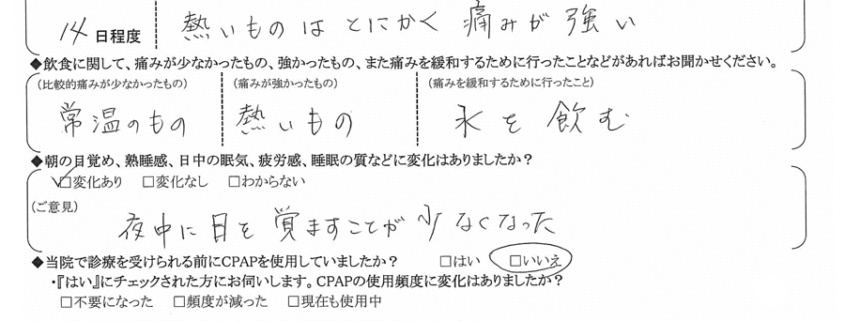 14日程度 熱いものはとにかく痛みが強い
◆飲食に関して、痛みが少なかったもの、強かったもの、また痛みを緩和するために行ったことなどがあればお聞かせください。
(比較的痛みが少なかったもの) (痛みが強かったもの) (痛みを緩和するために行ったこと)
常温のもの 熱いもの 水を飲む
◆朝の目覚め、熟睡感、日中の眠気、疲労感、睡眠の質などに変化はありましたか?
☑変化あり □変化なし □わからない
(ご意見)
夜中に目を覚ますことが少なくなった
◆当院で診療を受けられる前にCPAPを使用していましたか? □はい □いいえ
・『はい』にチェックされた方にお伺いします。CPAPの使用頻度に変化はありましたか?
□不要になった □頻度が減った □現在も使用中